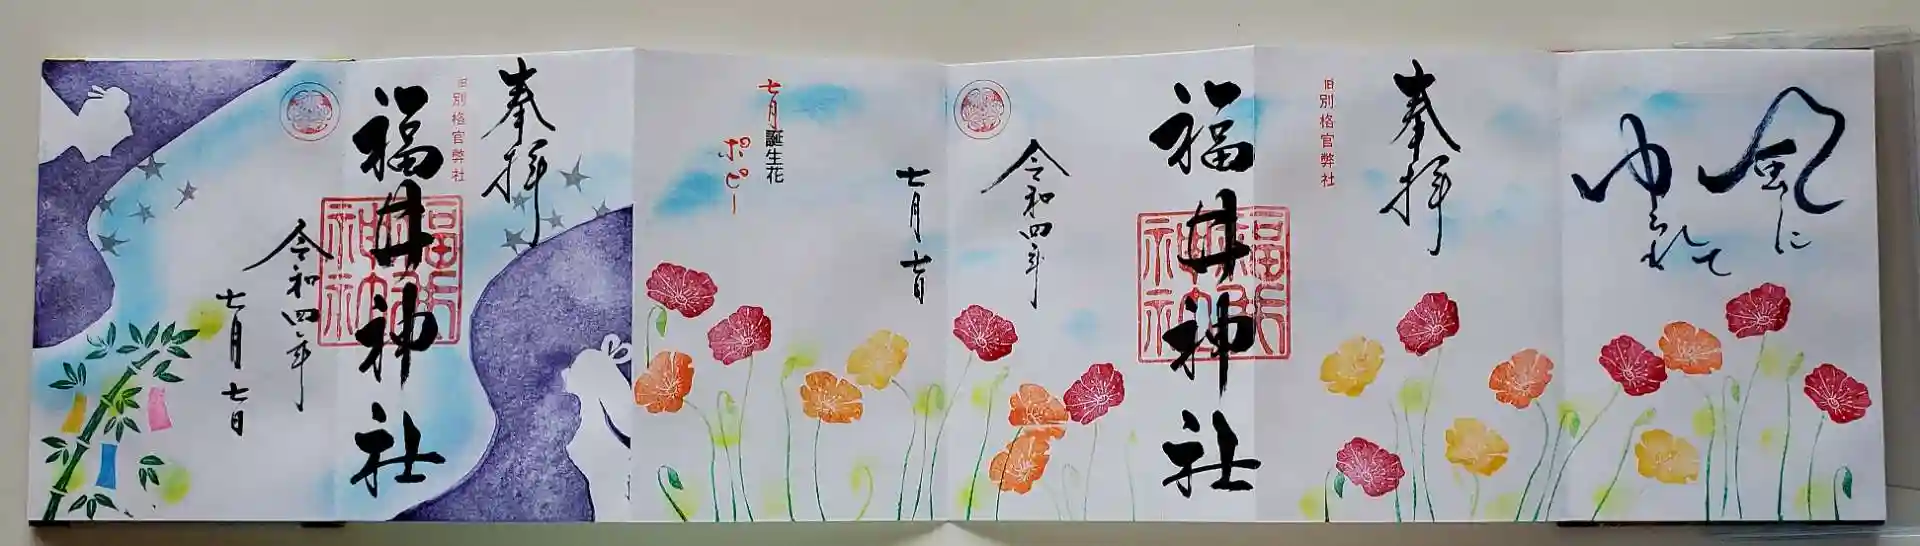 風に
ゆられて
奉拝
旧別格官幣社
福井神社
令和四年
七月七日
七月誕生花
ポピー
奉拝
旧別格官幣社
福井神社
令和四年
七月七日